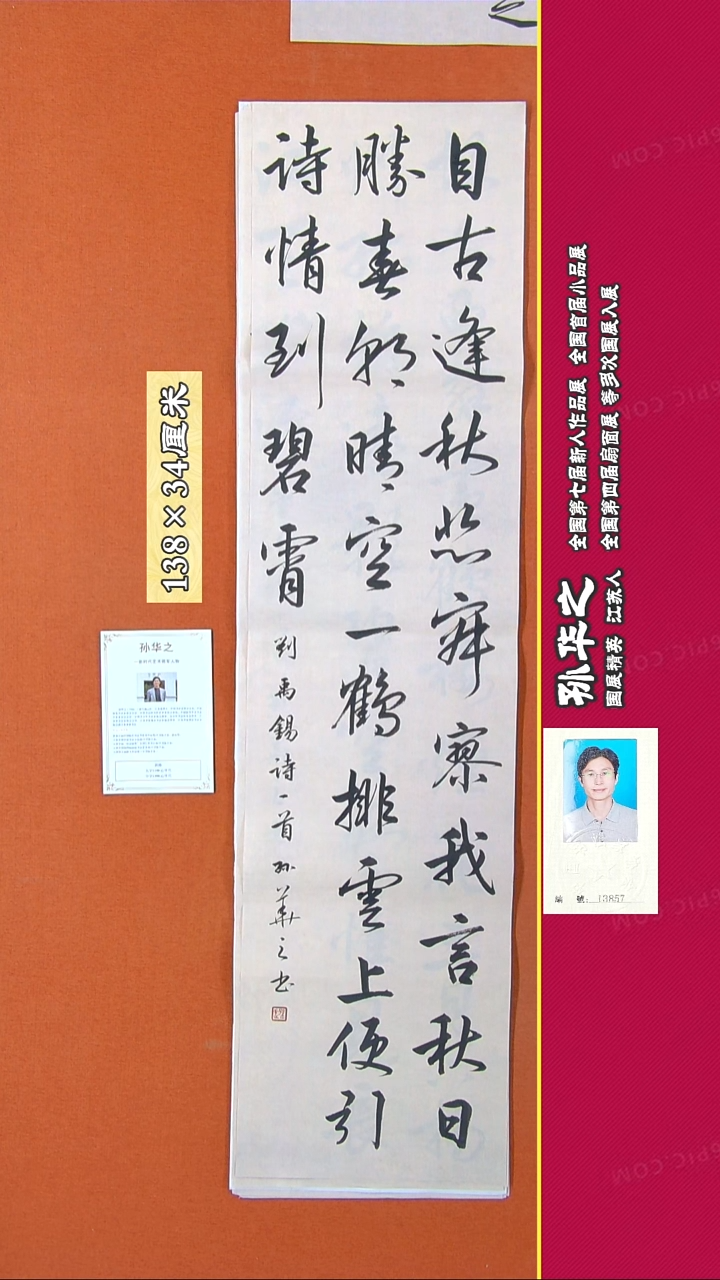 自古逢秋悲寂寥我言秋日
勝春朝晴空一鶴排雲上便引
詩情到碧霄
劉禹錫詩一首 孫華之书
138×34厘米
孙华之
孙华之
国展精英 江苏人
全国第七届新人作品展 全国首届小品展
全国第四届扇面展 等多次国展入展
編 號: 13857